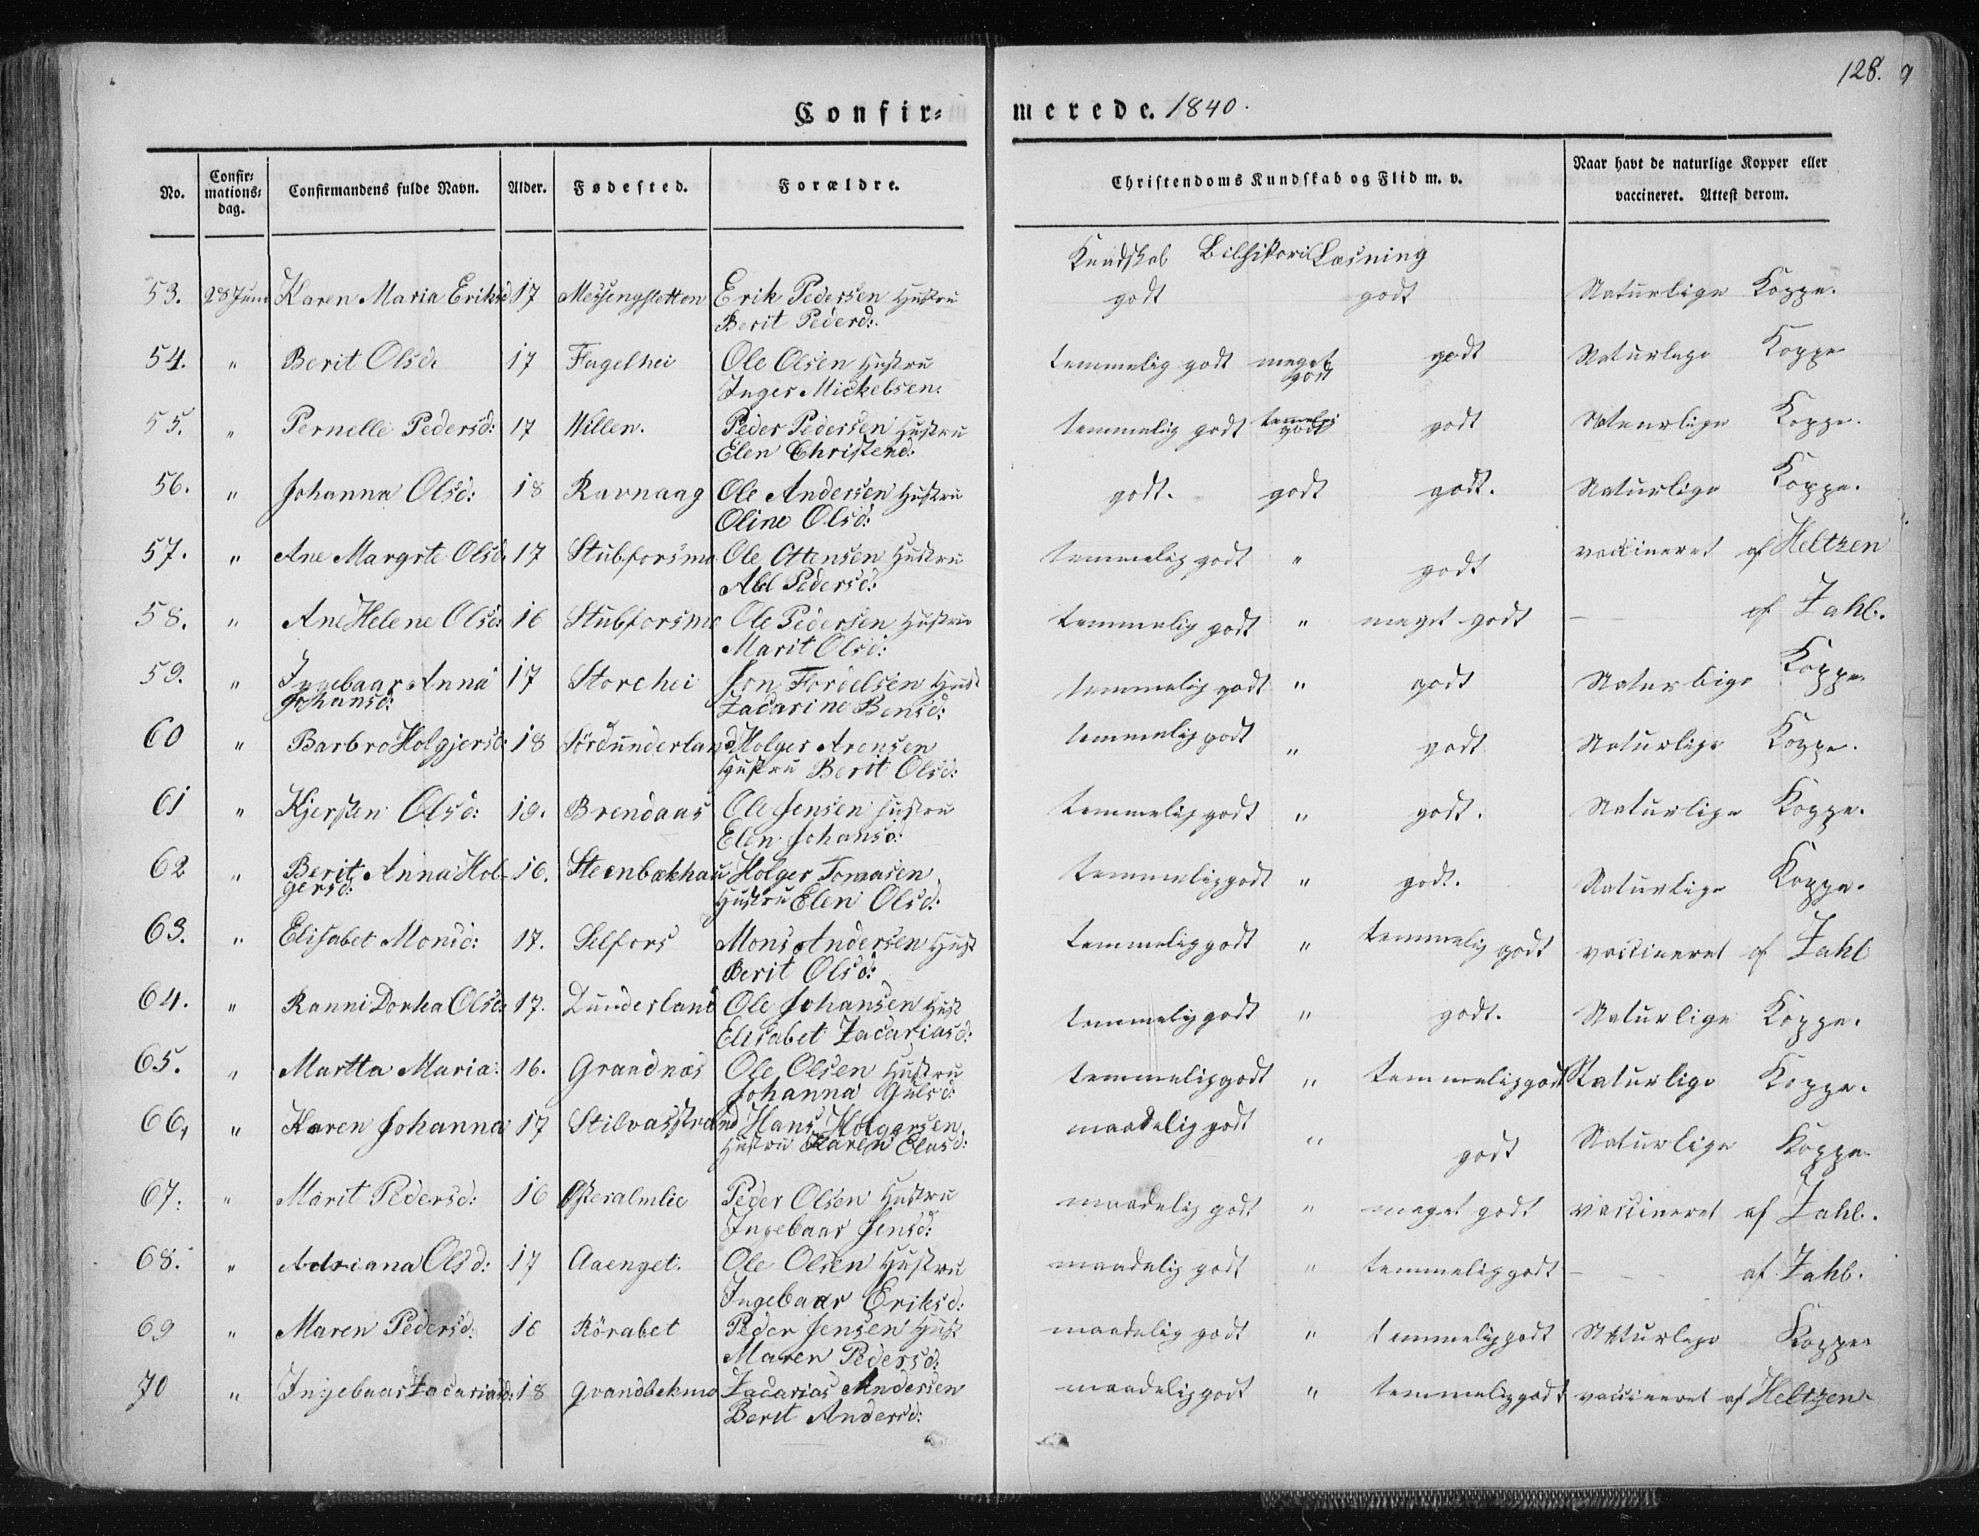 128.
Confirmerede. 1840.
No. Confirmations-dag. Confirmandens fulde Navn. Alder. Fødested. Forældre. Christendoms Kundskab og Flid m. v. Naar havt de naturlige Kopper eller vaccineret. Attest derom.
Kundskab Bibhistorie Læsning
53. 28 Juni Karen Maria Eriksd 17 Messingslotten Erik Pedersen Hustru godt godt Naturlige Koppe.
Berit Pedersd:
54. " Berit Olsd. 17 Fagelhei Ole Olsen Hustru temmelig godt meget godt godt Naturlige Koppe
Inger Mickelsen.
55. " Pernelle Pedersd: 17 Willen. Peder Pedersen Hustru temmelig godt temmelig godt godt Naturlige Koppe.
Elen Christend:
56. " Johanna Olsd: 18 Ravnaag Ole Andersen Hustru godt. godt godt. Naturlige Koppe.
Oline Olsd:
57. " Ane Margrte Olsd. 17 Stubforsmo Ole Ottensen Hustru temmelig godt " godt vaccineret af Heltzen
Abel Pedersd:
58. " Ane Helene Olsd: 16 Stubforsmo Ole Pedersen Hustru temmelig godt " meget godt — af Zahl.
Marit Olsd:
59. " Ingebaar Anna Johansd: 17 Storehei Jon Fordelsen Hust temmelig godt " godt Naturlige Koppe.
Zacarine Bensd:
60 " Barbro Holgjersd: 18 Sördunderland Holger Arensen temmelig godt " godt Naturlige Koppe.
Hustru Berit Olsd:
61 " Kjersten Olsd: 19. Brendaas Ole Jensen Hustru temmelig godt " godt. Naturlige Koppe.
Elen Johansd:
62 " Berit Anna Holgersd: 16. Steenbækhau Holger Tomasen temmelig godt " godt. Naturlige Koppe.
Hustru Elen Olsd:
63. " Elisabet Monsd: 17. Selfors Mons Andersen Hust temmelig godt " temmelig godt vaccineret af Zahl
Berit Olsd:
64. " Ranni Dorka Olsd: 17. Dunderland Ole Johansen Hust temmelig godt " godt. Naturlige Koppe.
Elisabet Zacariasd:
65. " Martta Maria. 16. Grandnæs Ole Olsen Hustru temmelig godt " temmelig godt Naturlige Koppe.
Johanna
66. " Karen Johanna 17 Stilvasstrand Hans Holgersen maadelig godt " godt Naturlige Koppe
Hustru Karen Elasd:
67. " Marit Pedersd: 16 Østeralmlie Peder Olsen Hustru maadelig godt " meget godt vaccineret af Zahl.
Ingebaar Jensd:
68. " Adriana Olsd: 17 Aaenget. Ole Olsen Hustru maadelig godt " temmelig godt — af Zahl.
Ingebaar Eriksd:
69 " Maren Pedersd: 16 Rörabet Peder Jensen Hust maadelig godt " temmelig godt Naturlige Koppe
Maren Pedersd:
70 " Ingebaar Zacariasd: 18 Grandbekmo Zacarias Andersen maadelig godt " temmelig godt vaccineret af Heltzen
Berit Andersd: